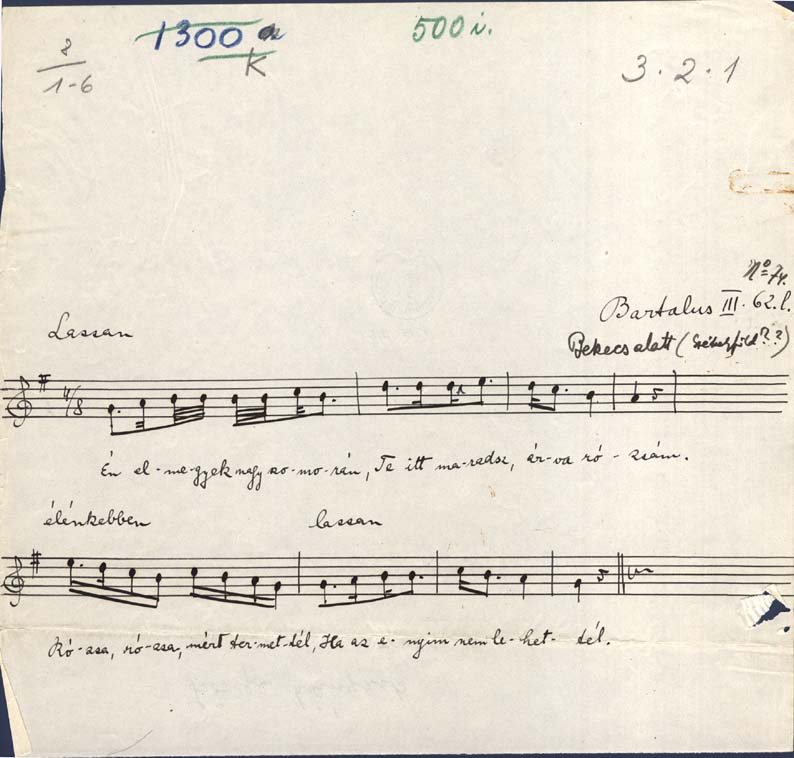 1300 a 500 i.
8 K 3. 2. 1
1-6
Nº 74.
Bartalus III. 62. l.
Lassan
Bekecsalatt (Székelyföld??)
4/8
Én el-me-gyek nagy szo-mo-rán, Te itt ma-radsz, ár-va ró-zsám.
élénkebben lassan
Ró-zsa, ró-zsa, mért ter-met-tél, Ha az e-nyim nem le-het-tél.